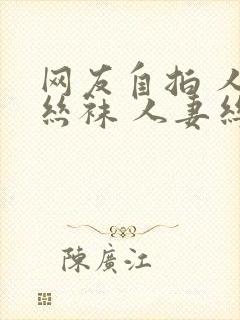 网友自拍 人
丝袜 人妻丝
陳廣江